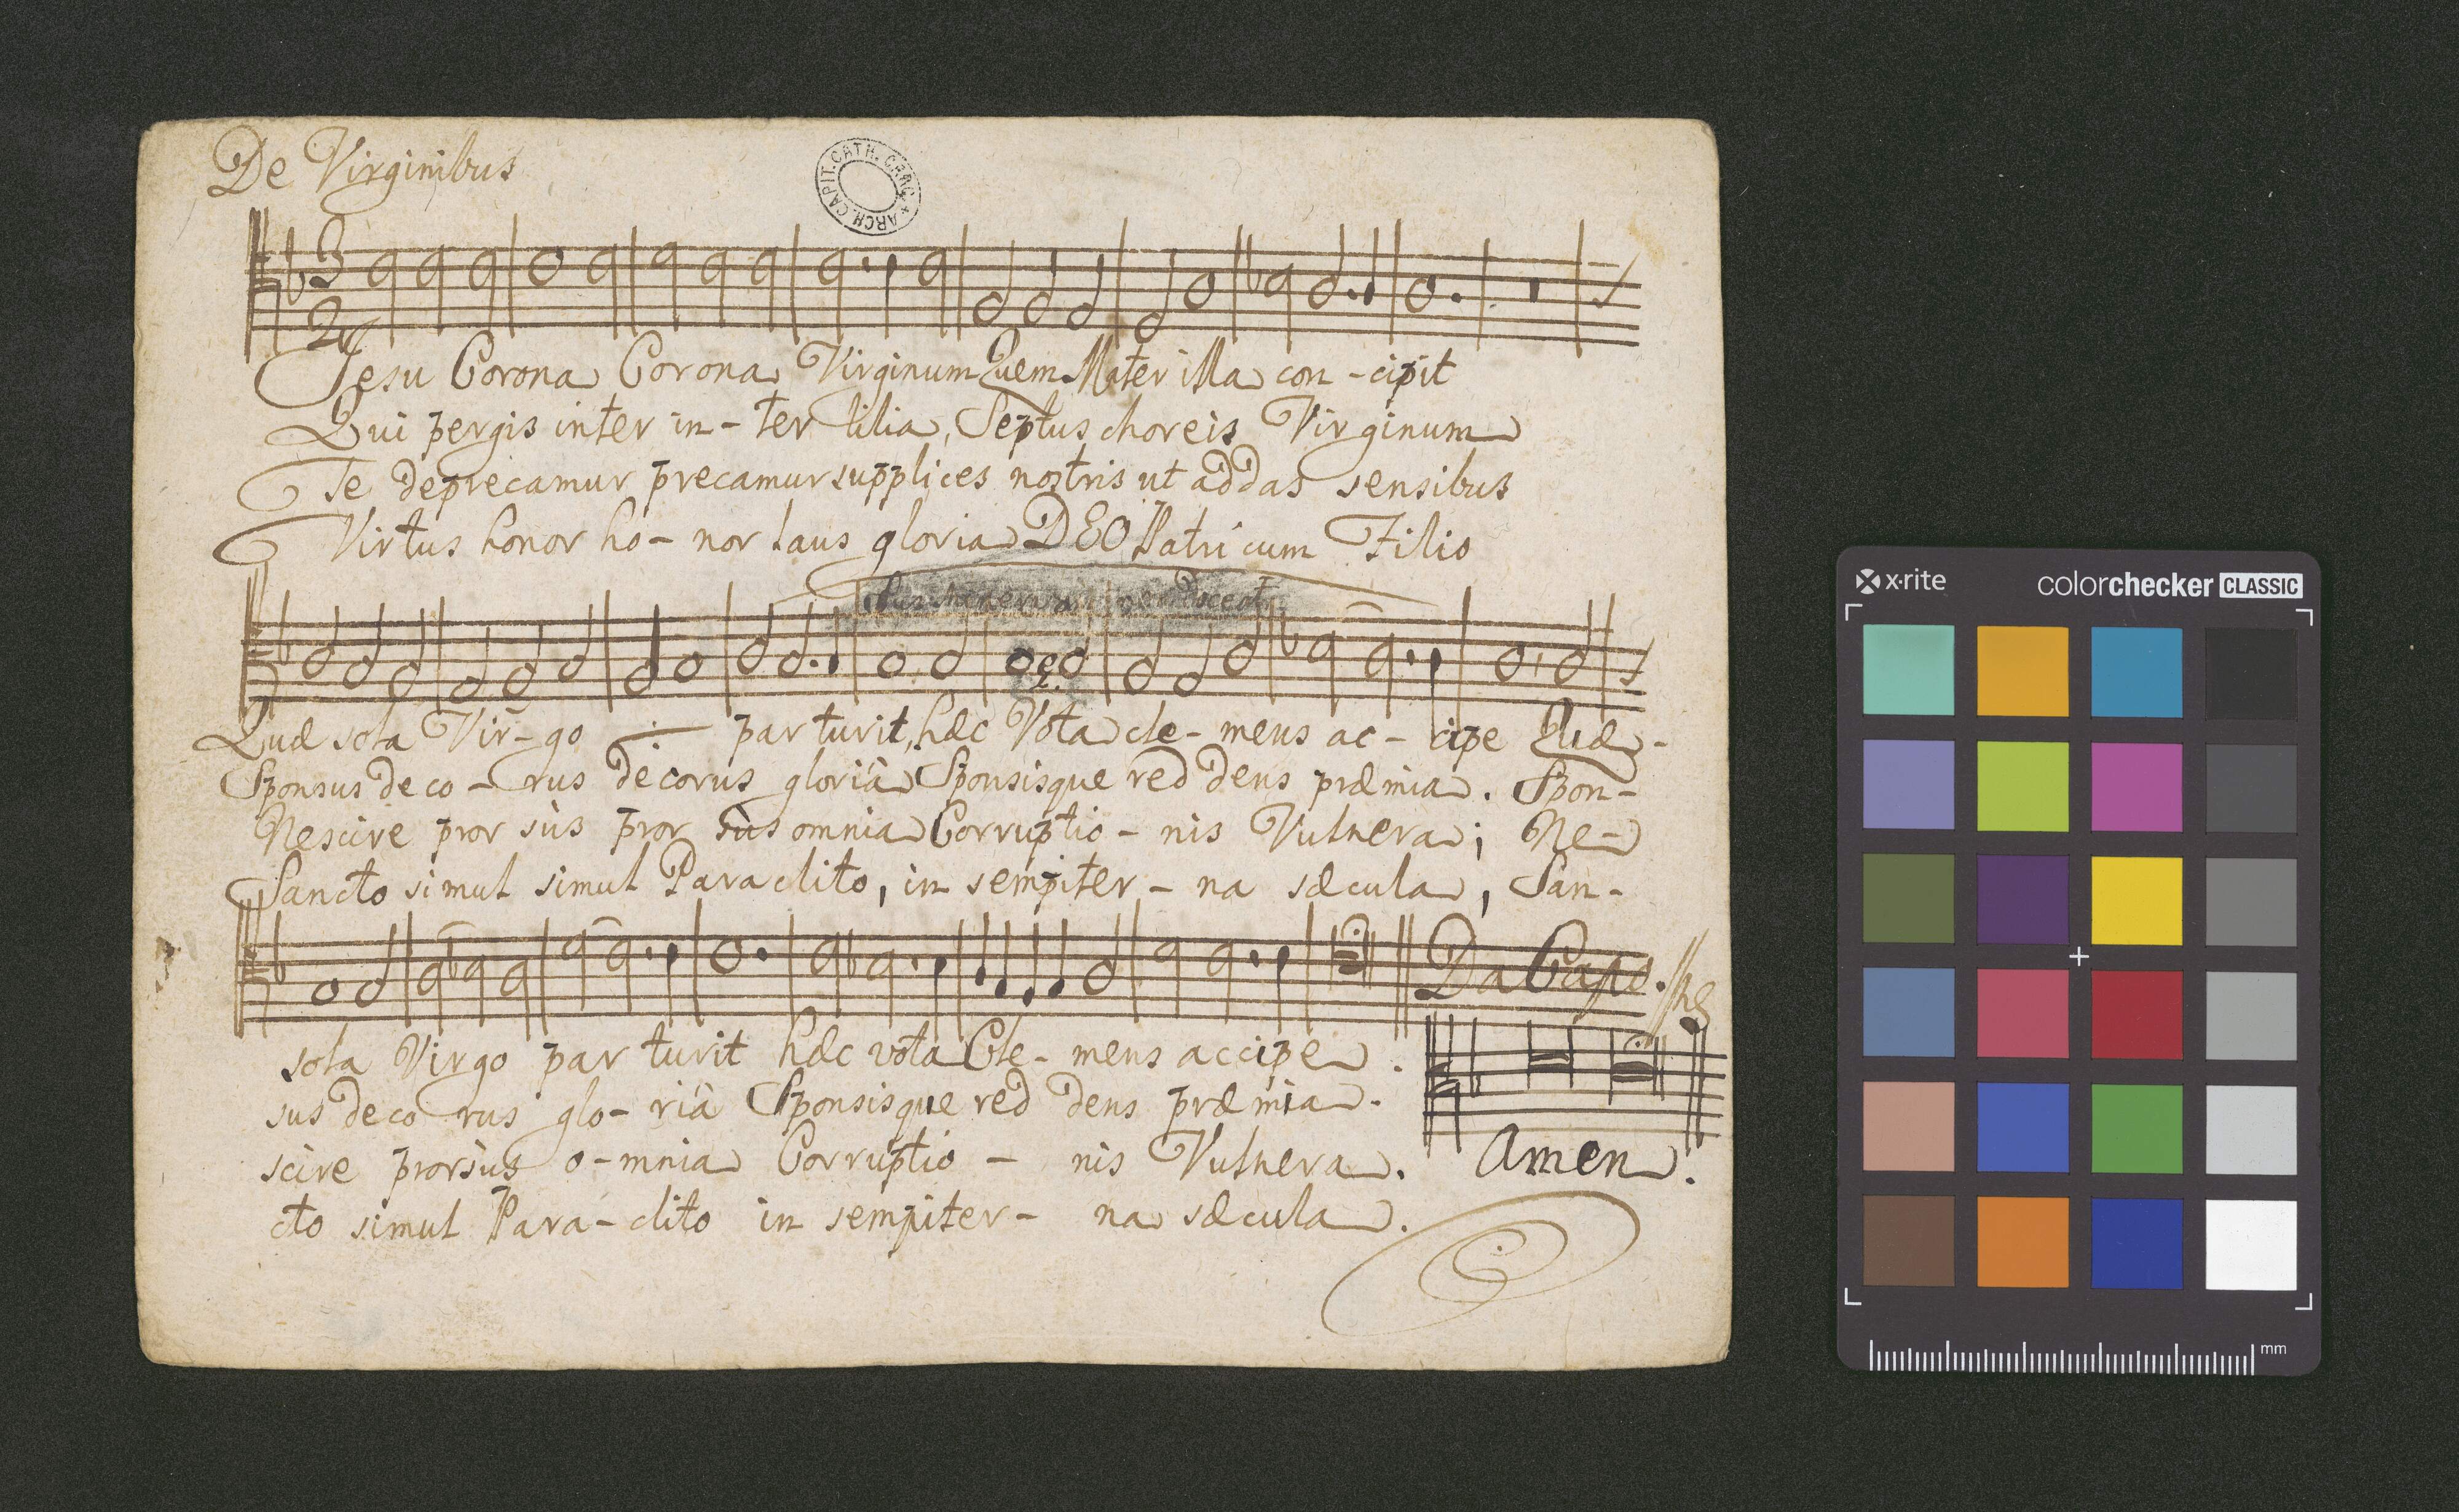 De Virginibus
ARCH. CAPIT. CATH. CRAC.
3
2
Jesu Corona Corona Virginum Quem Mater illa con - cipit
Qui pergis inter in - ter lilia, Septus choreis Virginum
Te deprecamur precamur supplices nostris ut addas sensibus
Virtus honor ho - nor laus gloria DEO Patri cum Filio
Quæ sola Vir - go ÷ par turit, hæc Vota cle - mens ac - cipe Quæ -
Sponsus de co - rus decorus gloriâ Sponsisque red dens præmia. Spon -
Nescire pror sùs pror sùs omnia Corruptio - nis Vulnera; Ne -
Sancto simul simul Paraclito, in sempiter - na sæcula, San -
Da Capo.
sola Virgo par turit hæc vota Cle - mens accipe.
sus deco rus glo - riâ Sponsisque red dens præmia.
scire prorsus o - mnia Corruptio - nis Vulnera.
cto simul Para - clito in sempiter - na sæcula.
Amen.
x·rite
colorchecker CLASSIC
mm